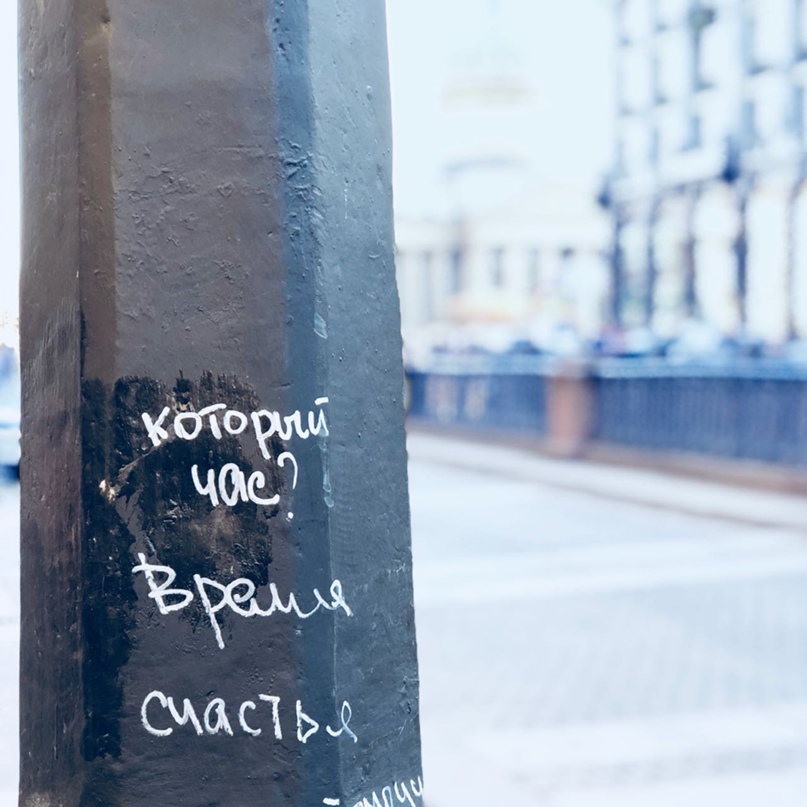 который
час?
Время
счастья